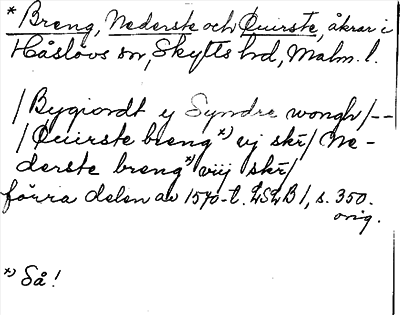 * Breng, Nederste och Øuirste, åkrar i
Håslövs sn, Skytts hd, Malm. l.
/Bygiordt y Syndre wongh/--
/Øuirste breng *) vj skr̄/ Ne-
derste breng *) viij skr̄/
förra delen av 1570-t. LSLB 1, s. 350.
orig.
*) Så!